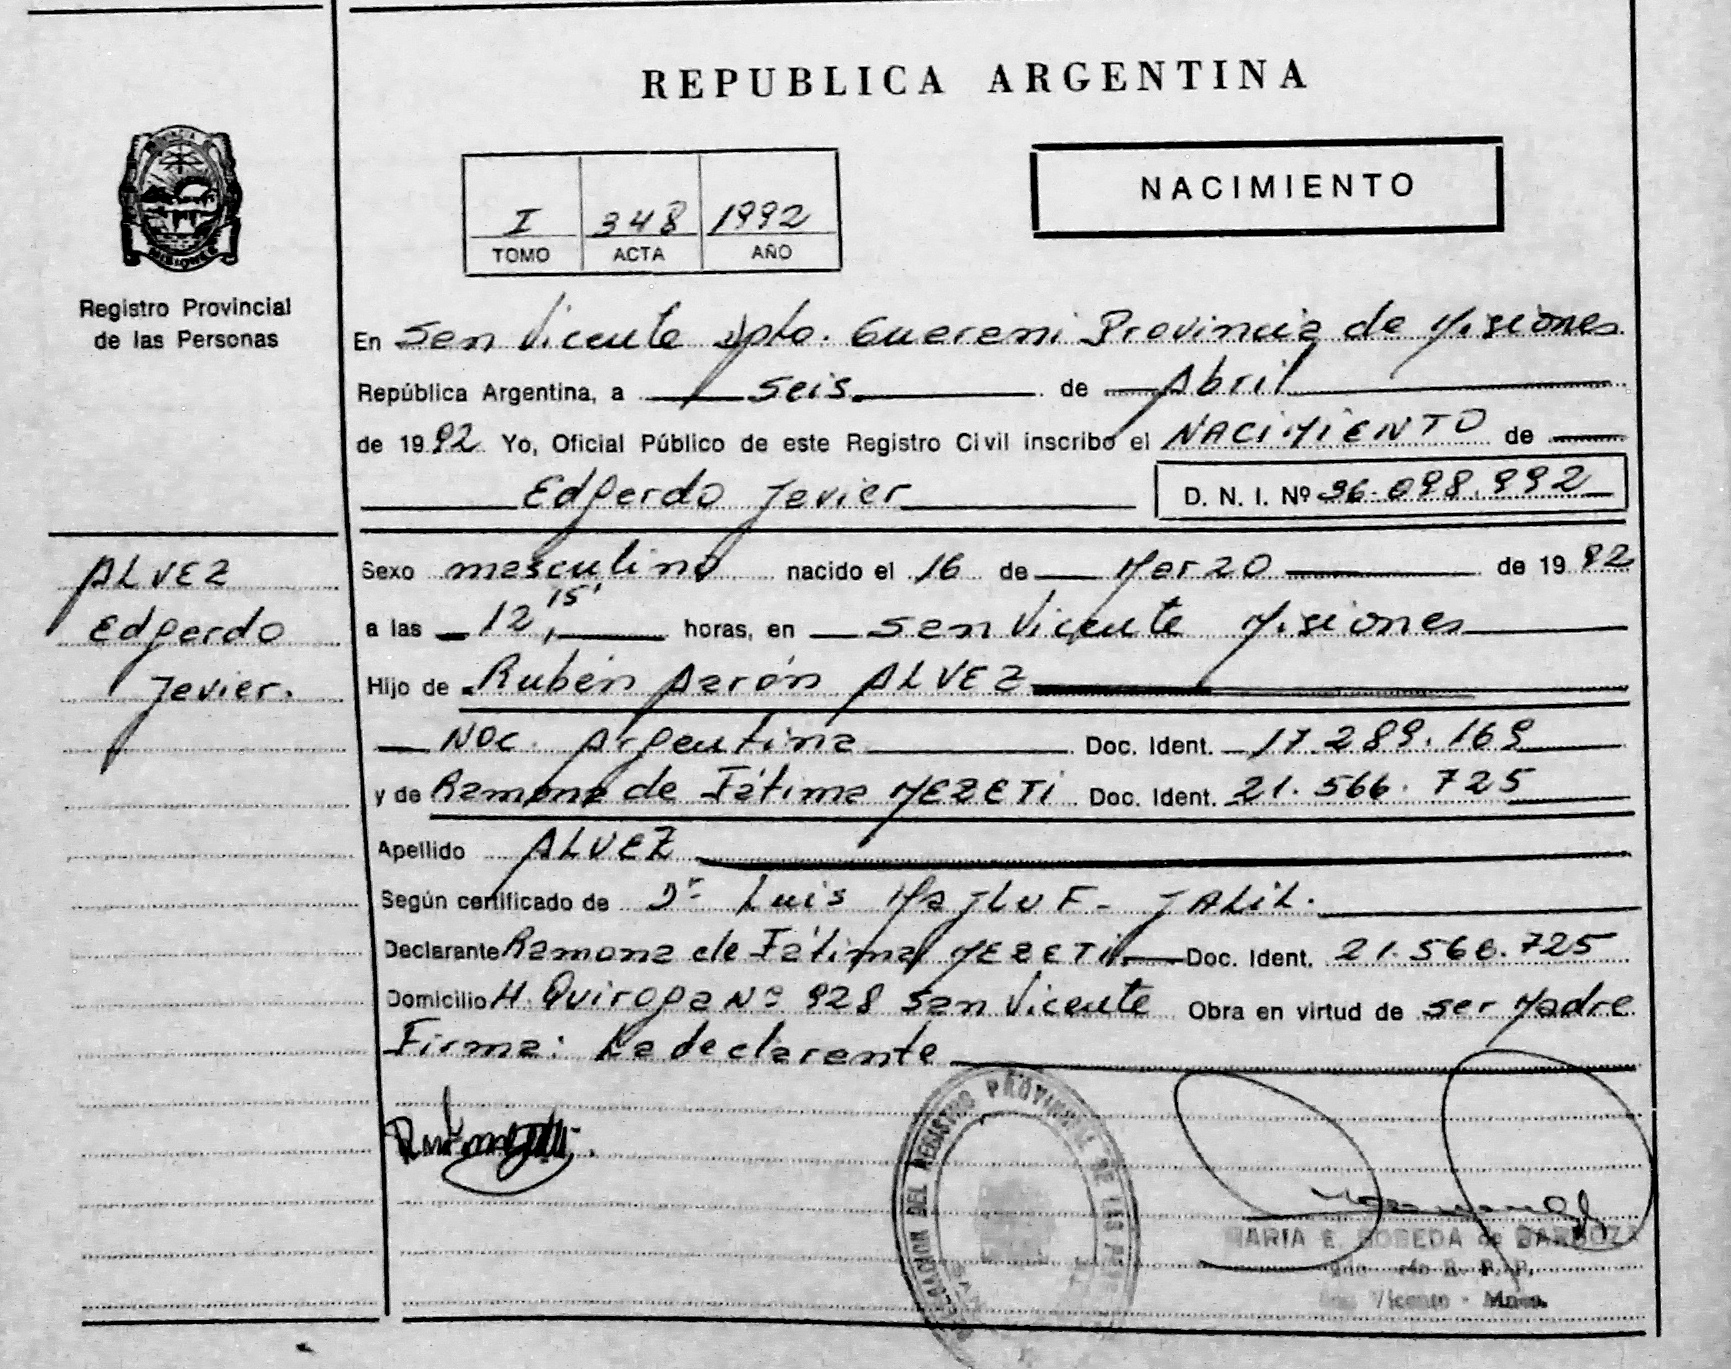 REPUBLICA ARGENTINA
NACIMIENTO
I 348 1992
TOMO ACTA AÑO
Registro Provincial
de las Personas
En San Vicente Dpto. Guarani Provincia de Misiones
República Argentina, a seis de Abril
de 1992 Yo, Oficial Público de este Registro Civil inscribo el NACIMIENTO de
Edgardo Javier D. N. I. Nº 36.098.992
ALVEZ
Edgardo
Javier.
Sexo masculino nacido el 16 de Marzo de 1992
a las 12,15' horas, en San Vicente Misiones
Hijo de Rubén Aarón ALVEZ
Nac. Argentina Doc. Ident. 17.289.169
y de Ramona de Fátima MEZETI Doc. Ident. 21.566.725
Apellido ALVEZ
Según certificado de Dr Luis MAJLUF- JALIL.
Declarante Ramona de Fátima MEZETI Doc. Ident. 21.566.725
Domicilio H. Quiroga Nº 928 San Vicente Obra en virtud de ser Madre
Firma: La declarante
DEL REGISTRO PROVINCIAL DE LAS
MARIA E. BOBEDA de BARBOZA
R. P. P.
San Vicente - Mnes.